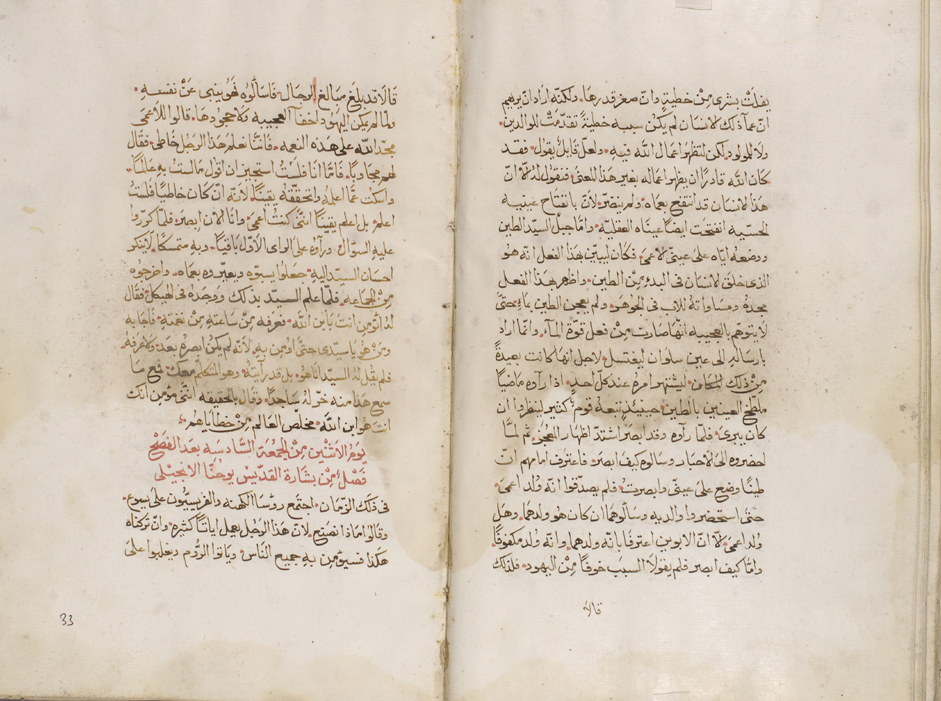 يفلت بشري من خطية وان صغر قدرها ولكنه اراد ان يريهم
ان عما ذلك الانسان لم يكن سببه خطية تقدمت للوالدين
ولا للمولود لكن لتظهر اعمال الله فيه ولعل قايل يقول فقد
كان الله قادرا ان يظهر اعماله بغير هذا المعنى فنقول له ان
هذا الانسان قد انتفع بعماه ولم ينضر لان بانفتاح عينيه
الحسيه انفتحت ايضا عيناه العقلية واما جبل السيد الطين
ووضعه اياه على عيني الاعمى فكان ليبين بهذا الفعل انه هو
الذي خلق الانسان في البدء من الطين واظهر بهذا الفعل
مجده ومساواته للاب في الجوهر ولم يعجن الطين بماء حتى
لا يتوهم بالعجيبه انها صارت من فعل قوة الماء وانما اراد
بارساله الى عين سلوان ليغتسل لاجل انها كانت بعيدة
من ذلك المكان ليشتهر امره عند كل احد اذا راوه ماضيا
ملطخ العينين بالطين حينيذ تبعه قوم كثير لينظروا ان
كان يبرى فلما راوه وقد ابصر اشتد اظهار المعجز ثم لما
احضروه الى الاحبار وسالوه كيف ابصر فاعترف امامهم ان
طينا وضع على عيني وابصرت فلم يصدقوا انه ولد اعمى
حتى استحضروا والديه وسالوهما ان كان هو ولدهما وهل
ولد اعمى لا ان الابوين اعترفا بانه ولدهما وانه ولد مكفوفا
واما كيف ابصر فلم يقولا السبب خوفا من اليهود فلذلك
قالا
قالا قد بلغ مبالغ الرجال فاسالوه فهو ينبي عن نفسه
ولما لم يمكن اليهود اخفا العجيبه ولا جحودها قالوا للاعمى
مجد الله على هذه النعمه فاننا نعلم هذا الرجل خاطي فقال
لهم مجاوبا فاما انا فلست استجيز ان اقول ما لست به عالما
واسكت عما اعلمه واتحققه يقينا لانه ان كان خاطيا فلست
اعلم بل اعلم يقينا انني كنت اعمى وانا الان ابصر فلما كرروا
عليه السوال وراوه على الراي الاول باقيا وبه متمسكا لا ينكر
احسان السيد اليه جعلوا يسبوه ويعيروه بعماه واخرجوه
من الجماعه فلما علم السيد بذلك ووجده في الهيكل فقال
له اتومن انت بابن الله فعرفه من ساعته من نغمته فاجابه
ومن هو يا سيدي حتى اومن به لانه لم يكن ابصره بعد ولا عرفه
فلم يقل له السيد انا هو بل قد رايته وهو المتكلم معك فمع ما
سمع هذا منه خر له ساجدا وقال بالحقيقه انني مومن انك
انت هو ابن الله مخلص العالم من خطاياهم
يوم الاثنين من الجمعة السادسه بعد الفصح
فصل من بشارة القديس يوحنا الانجيلي
في ذلك الزمان اجتمع روسا الكهنه والفريسيون على يسوع
وقالوا ماذا نصنع لان هذا الرجل يعمل اياتا كثيره وان تركناه
هكذا فسيومن به جميع الناس وياتوا الروم ويغلبوا على
33